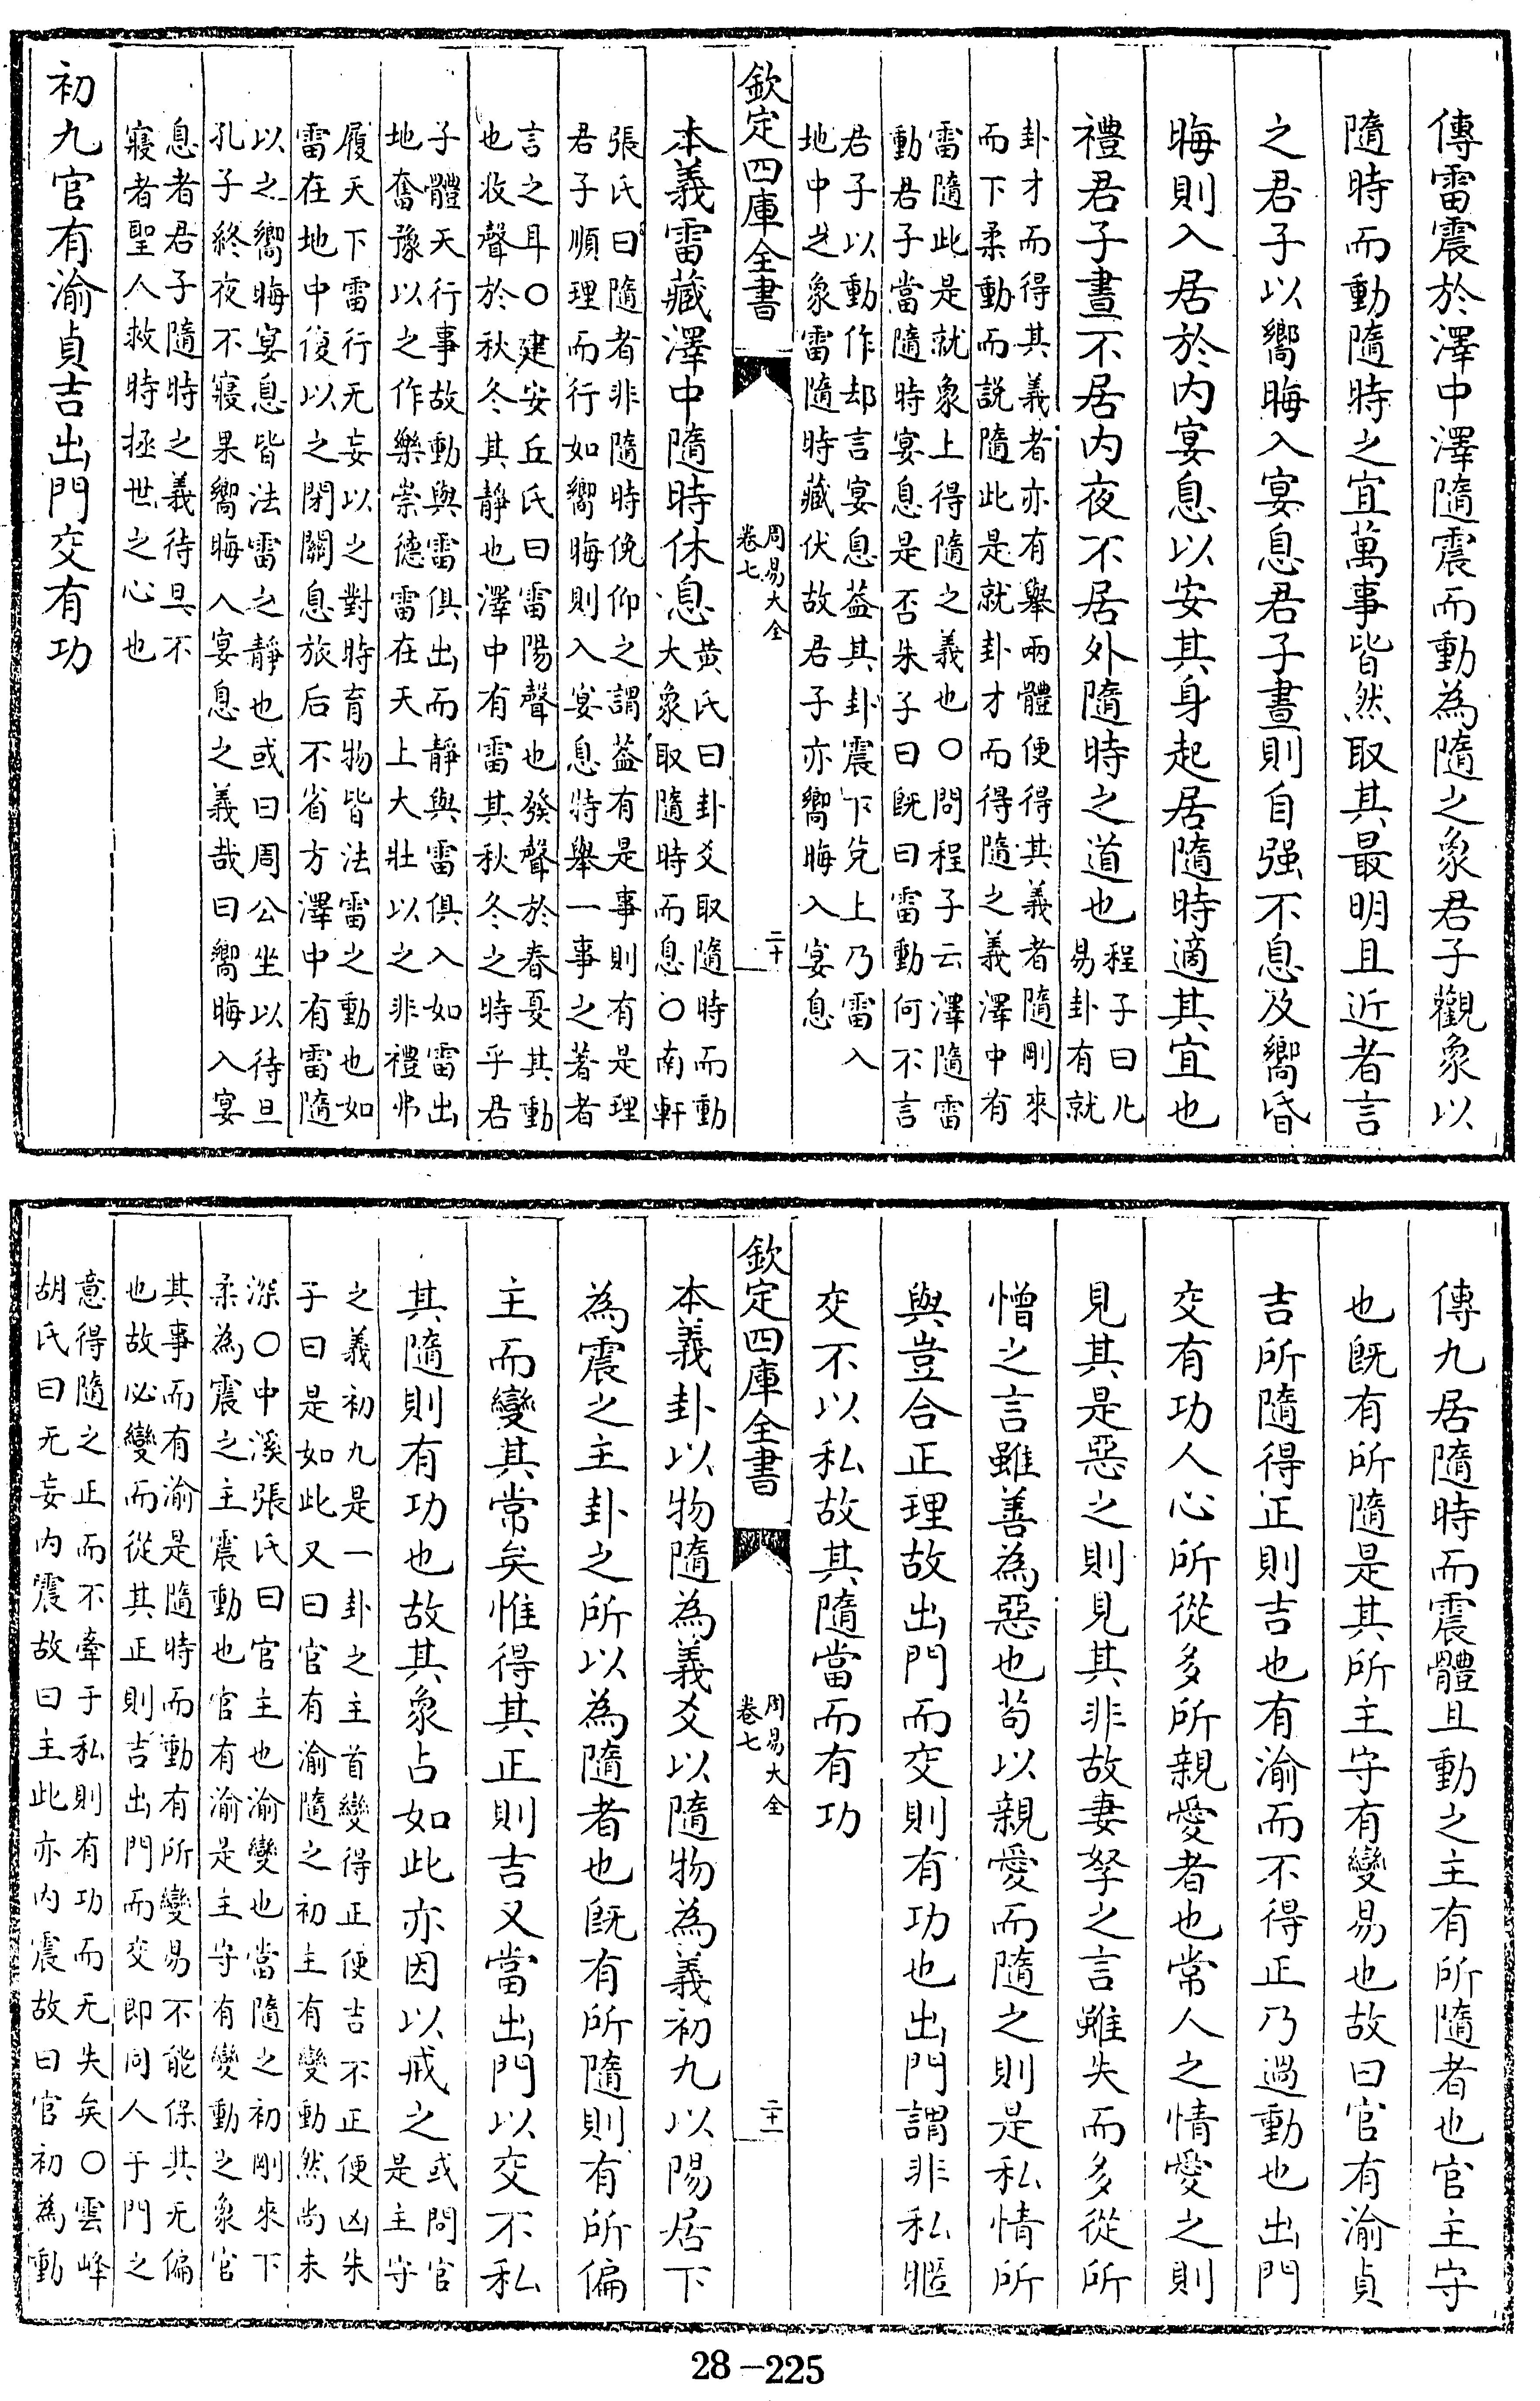 傳雷震於澤中澤隨震而動為隨之象君子觀象以
隨時而動隨時之宜萬事皆然取其最明且近者言
之君子以嚮晦入宴息君子晝則自强不息及嚮昏
晦則入居於内宴息以安其身起居隨時適其宜也
禮君子晝不居内夜不居外隨時之道也
程子曰凡
易卦有就
卦才而得其義者亦有舉兩體便得其義者隨剛來
而下柔動而説隨此是就卦才而得隨之義澤中有
雷隨此是就象上得隨之義也○問程子云澤隨雷
動君子當隨時宴息是否朱子曰既曰雷動何不言
君子以動作却言宴息葢其卦震下兌上乃雷入
地中之象雷隨時藏伏故君子亦嚮晦入宴息
欽定四庫全書
周易大全
卷七
二十
本義雷藏澤中隨時休息
黄氏曰卦爻取隨時而動
大象取隨時而息○南軒
張氏曰隨者非隨時俛仰之謂葢有是事則有是理
君子順理而行如嚮晦則入宴息特舉一事之著者
言之耳○建安丘氏曰雷陽聲也發聲於春夏其動
也收聲於秋冬其靜也澤中有雷其秋冬之時乎君
子體天行事故動與雷俱出而靜與雷俱入如雷出
地奮豫以之作樂崇德雷在天上大壯以之非禮弗
履天下雷行无妄以之對時育物皆法雷之動也如
雷在地中復以之閉關息旅后不省方澤中有雷隨
以之嚮晦宴息皆法雷之靜也或曰周公坐以待旦
孔子終夜不寢果嚮晦入宴息之義哉曰嚮晦入宴
息者君子隨時之義待旦不
寢者聖人救時拯世之心也
初九官有渝貞吉出門交有功
傳九居隨時而震體且動之主有所隨者也官主守
也既有所隨是其所主守有變易也故曰官有渝貞
吉所隨得正則吉也有渝而不得正乃過動也出門
交有功人心所從多所親愛者也常人之情愛之則
見其是惡之則見其非故妻孥之言雖失而多從所
憎之言雖善為惡也苟以親愛而隨之則是私情所
與豈合正理故出門而交則有功也出門謂非私暱
交不以私故其隨當而有功
欽定四庫全書
周易大全
卷七
二十一
本義卦以物隨為義爻以隨物為義初九以陽居下
為震之主卦之所以為隨者也既有所隨則有所偏
主而變其常矣惟得其正則吉又當出門以交不私
其隨則有功也故其象占如此亦因以戒之
或問官
是主守
之義初九是一卦之主首變得正便吉不正便凶朱
子曰是如此又曰官有渝隨之初主有變動然尚未
深○中溪張氏曰官主也渝變也當隨之初剛來下
柔為震之主震動也官有渝是主守有變動之象官
其事而有渝是隨時而動有所變易不能保其无偏
也故必變而從其正則吉出門而交即同人于門之
意得隨之正而不牽于私則有功而无失矣○雲峰
胡氏曰无妄内震故曰主此亦内震故曰官初為動
28-225